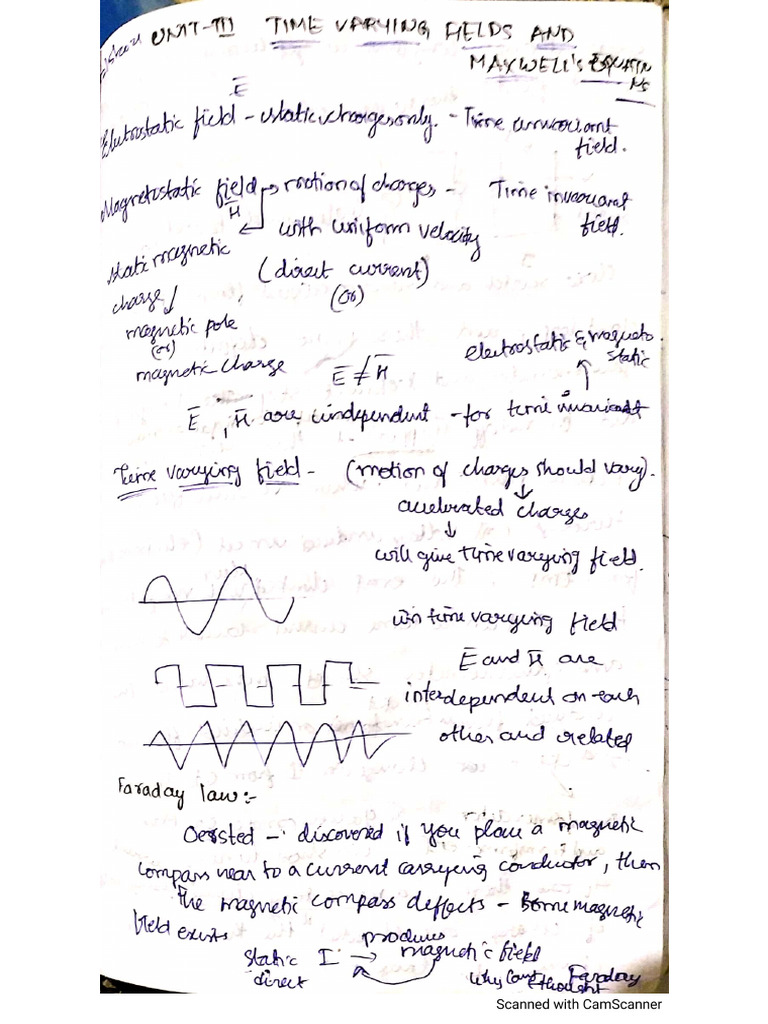 UNIT-III TIME VARYING FIELDS AND
MAXWELL's EQUATIN
NS
E̅
Elutrostatic field - static charges only. - Time invariant
field.
Magnetostatic field → motion of charges - Time invariant
H̅ field.
with uniform velocity
static magnetic
(direct current)
charge
(or)
magnetic pole
(or)
magnetic charge
E̅ ≠ H̅
electrostatic & magneto
static
E̅, H̅ are independent - for time invariant
Time varying field - (motion of charges should vary).
accelerated charges
will give time varying field.
in time varying field
E̅ and H̅ are
interdependent on each
other and related
Faraday law:-
Oersted - discovered if you place a magnetic
compass near to a current carrying conductor, then
the magnetic compass deffects - some magnetic
field exists
produces
static I → magnetic field
direct
Why cant Faraday
thought
Scanned with CamScanner